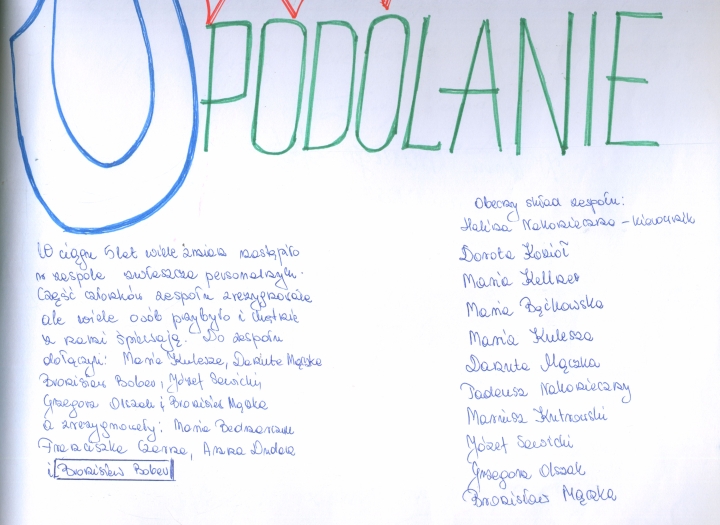 PODOLANIE
W ciągu 5 lat wiele zmian nastąpiło
w zespole zwłaszcza personalnym.
Część członków zespołu zrezygnowała
ale wiele osób przybyło i chętnie
z nami śpiewają. Do zespołu
dołączyli: Maria Kulesza, Danuta Mączka
Bronisław Bober, Józef Sawicki,
Grzegorz Olszak i Bronisław Mączka
a zrezygnowały: Maria Bednarczuk
Franciszka Czarna, Anna Dudek
i Bronisław Bober
Obecny skład zespołu:
Halina Nakonieczna - kierownik
Dorota Kozioł
Maria Kellner
Maria Bąchowska
Maria Kulesza
Danuta Mączka
Tadeusz Nakonieczny
Mariusz Kutnowski
Józef Sawicki
Grzegorz Olszak
Bronisław Mączka